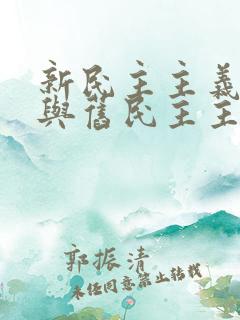 新民主主義
與舊民主主
郭振清
未经同意禁止转载